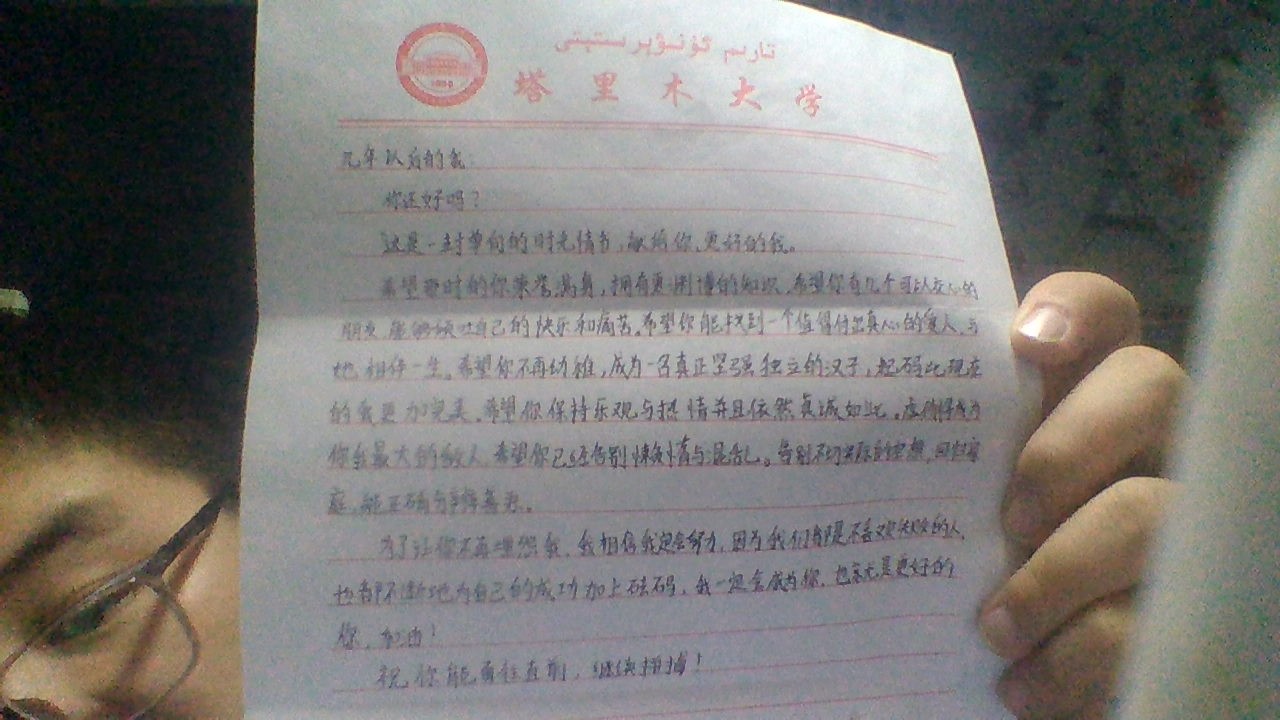 تارىم ئۇنىۋېرسىتېتى
塔里木大学
几年以后的我:
你还好吗?
这是一封单向的时光情书,献给你,更好的我。
希望那时的你荣誉满身,拥有更渊博的知识,希望你有几个可以交心的
朋友,能够倾吐自己的快乐和痛苦。希望你能找到一个值得付出真心的爱人,与
她相伴一生。希望你不再幼稚,成为一名真正坚强独立的汉子,起码比现在
的我更加完美。希望你保持乐观与热情并且依然真诚如此。
你最大的敌人,希望你已经告别懒惰与混乱。告别不切实际的空想,回归家
庭,能正确
为了让你不再埋怨我,我相信我定会努力,因为我们都是不喜欢失败的人,
也都不断地为自己的成功加上砝码,我一定会成为你,也就是更好的
你,加油!
祝你能勇往直前,继续拼搏!